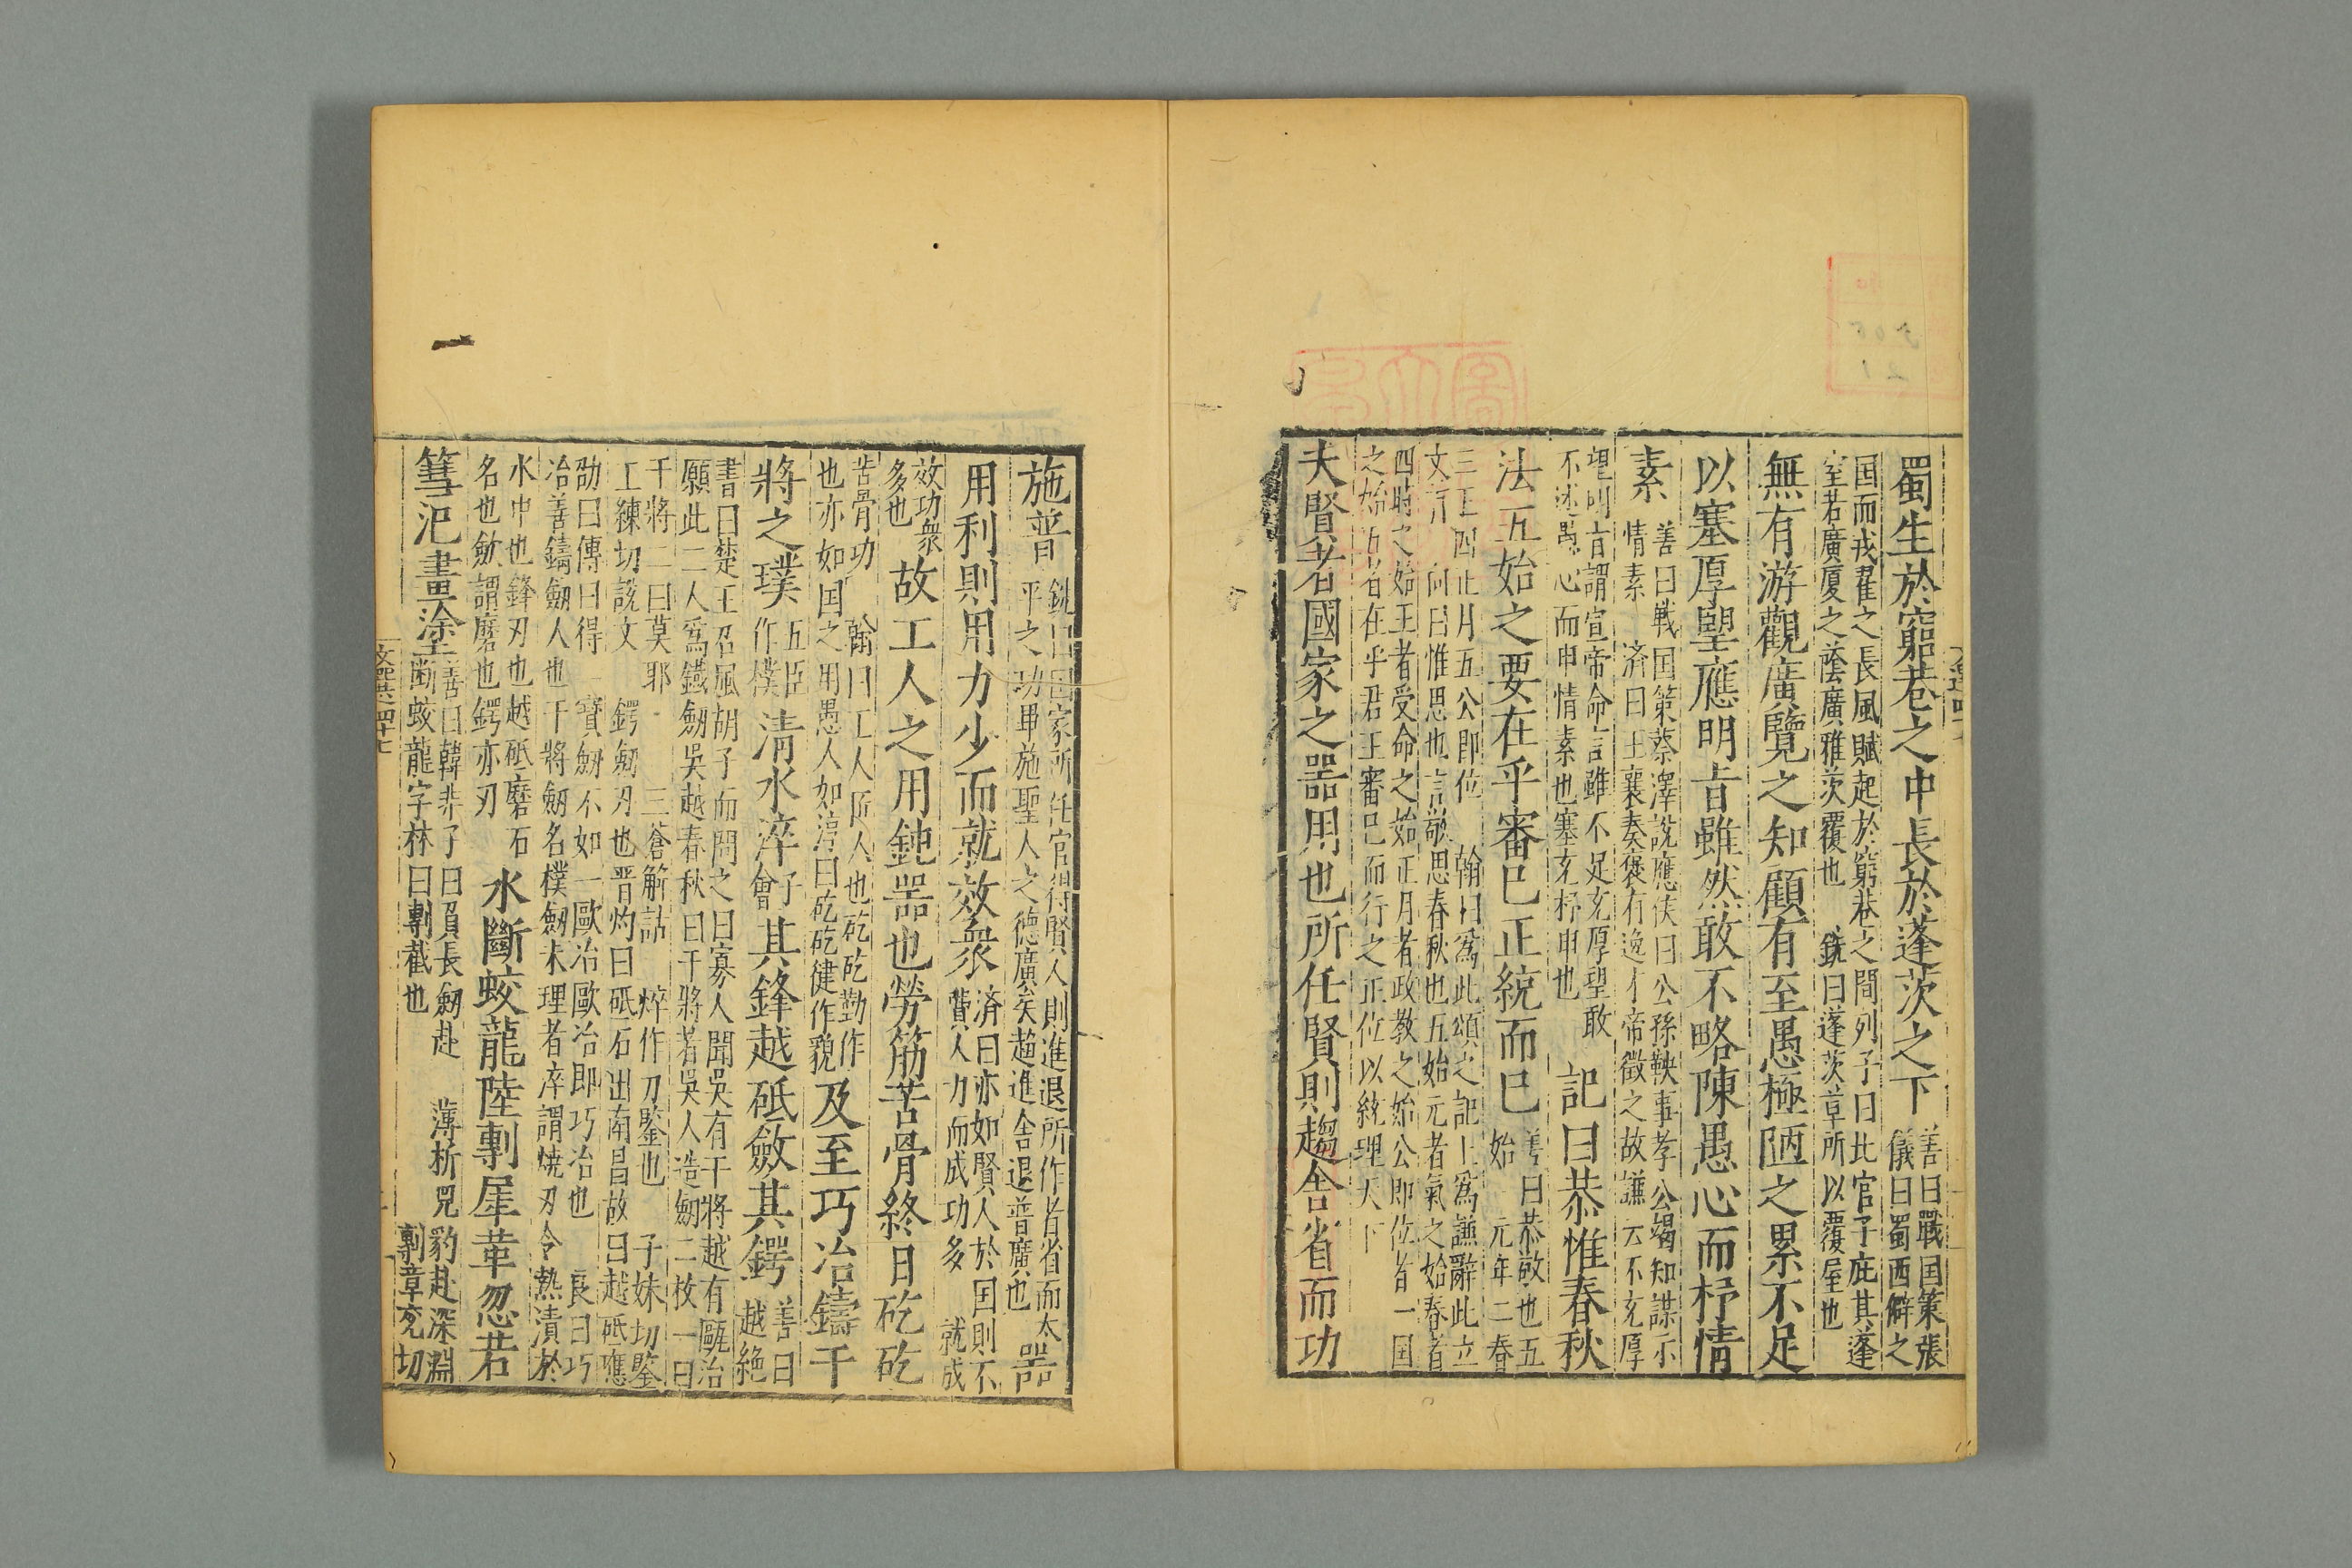 蜀生於窮巷之中長於蓬茨之下善曰戰国策張儀曰蜀西僻之
国而戎翟之長風賦起於窮巷之間列子曰北宮子庇其蓬
室若廣厦之蔭廣雅茨覆也 銑曰蓬茨草所以覆屋也
無有游觀廣覽之知顧有至愚極陋之累不足
以塞厚望應明旨雖然敢不略陳愚心而杼情
素善曰戦国策蔡澤說應侯曰公孫鞅事孝公竭知謀示
情素 済曰王襄奏襃有逸才帝徵之故謙云不充厚
望明旨謂宣帝命言雖不足充厚望敢
不述愚心而申情素也塞充杼申也 記曰恭惟春秋
法五始之要在乎審已正統而已善曰恭敬也五始 元年二春
三王四正月五公即位 翰曰為此頌之記上為謙辭此立
文 何曰惟思也言敬思春秋也五始元者氣之始春者
四時之始王者受命之始正月者政教之始公即位者一国
之始五者在乎君王審已而行之正位以統理天下
夫賢者國家之器用也所任賢則趨舍省而功
施普銑曰国家所任官得賢人則進退所作者省而太
平之功畢施聖人之德廣矣趨進舍退普廣也 器
用利則用力少而就效衆済曰亦如賢人於国則不
費人力而成功多 就成
效功衆
多也 故工人之用鈍器也勞筋苦骨終日矻矻
苦骨功 翰曰工人匠人也矻矻勤作
也亦如国之用愚人如淳曰矻矻健作貌 及至巧冶鑄干
將之璞五臣作樸 清水淬子會其鋒越砥斂其鍔善曰越絶
書曰楚王召風胡子而問之曰寡人聞吳有干將越有甌冶
願此二人爲鐵劒吳越春秋曰干將者吳人造劒二枚一曰
干將二曰莫耶 三蒼解詁 焠作刀鑒也 子妹切鑒
工練切說文 鍔劒刃也晋灼曰砥石出南昌故曰越砥應
劭曰傳曰得 寶劒不如一歐冶歐冶即巧冶也 良曰巧
冶善鑄劒人也干將劒名樸劒未理者淬謂燒刃令熱漬於
水中也鋒刃也越砥磨石
名也斂謂磨也鍔亦刃 水斷蛟龍陸剸犀革忽若
篲氾畫塗善曰韓非子曰負長劒赴 薄析兕豹赴深淵
断蛟龍字林曰剸截也 剸章兖切
文選卷四十七